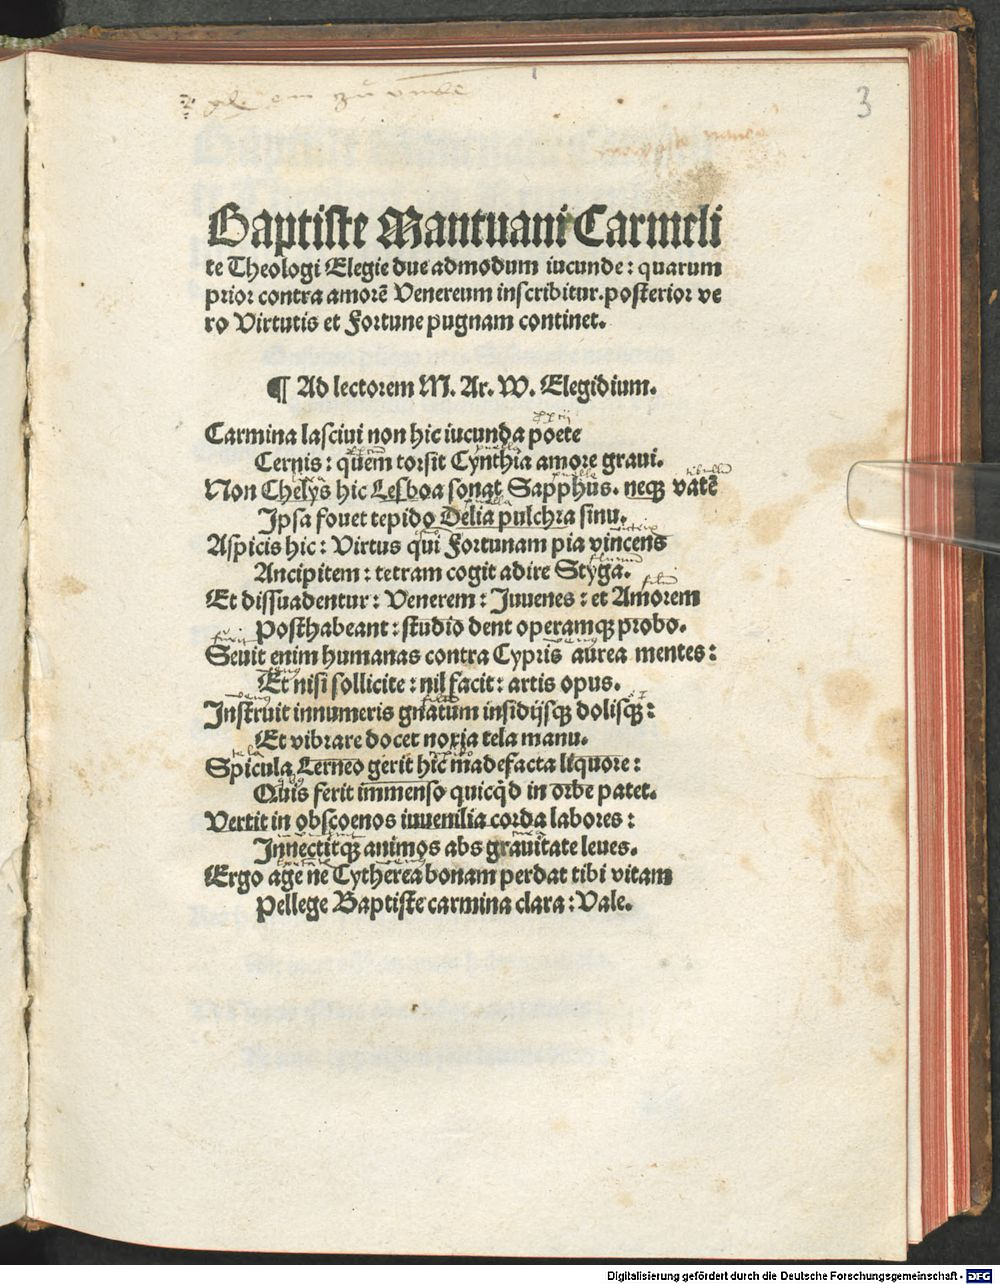 3
Baptiste Mantuani Carmeli
te Theologi Elegie due admodum iucunde: quarum
prior contra amorē Venereum inscribitur. posterior ve
ro Virtutis et Fortune pugnam continet.
¶ Ad lectorem M. Ar. W. Elegidium.
Carmina lasciui non hic iucunda poete
Cernis: quem torsit Cynthia amore graui.
Non Chelys hic Lesboa sonat Sapphus. neqꝫ vatē
Ipsa fouet tepido Delia pulchra sinu.
Aspicis hic: Virtus qui Fortunam pia vincens
Ancipitem: tetram cogit adire Styga.
Et dissuadentur: Venerem: Iuuenes: et Amorem
Posthabeant: studio dent operamqꝫ probo.
Seuit enim humanas contra Cypris aurea mentes:
Et nisi sollicite: nil facit: artis opus.
Instruit innumeris gnatum insidijsqꝫ dolisqꝫ:
Et vibrare docet noxia tela manu.
Spicula Lerneo gerit hic madefacta liquore:
Quis ferit immenso quicqͥd in orbe patet.
Vertit in obscoenos iuuenilia corda labores:
Innectitqꝫ animos abs grauitate leues.
Ergo age ne Cytherea bonam perdat tibi vitam
Pellege Baptiste carmina clara: Vale.
Digitalisierung gefördert durch die Deutsche Forschungsgemeinschaft - DFG